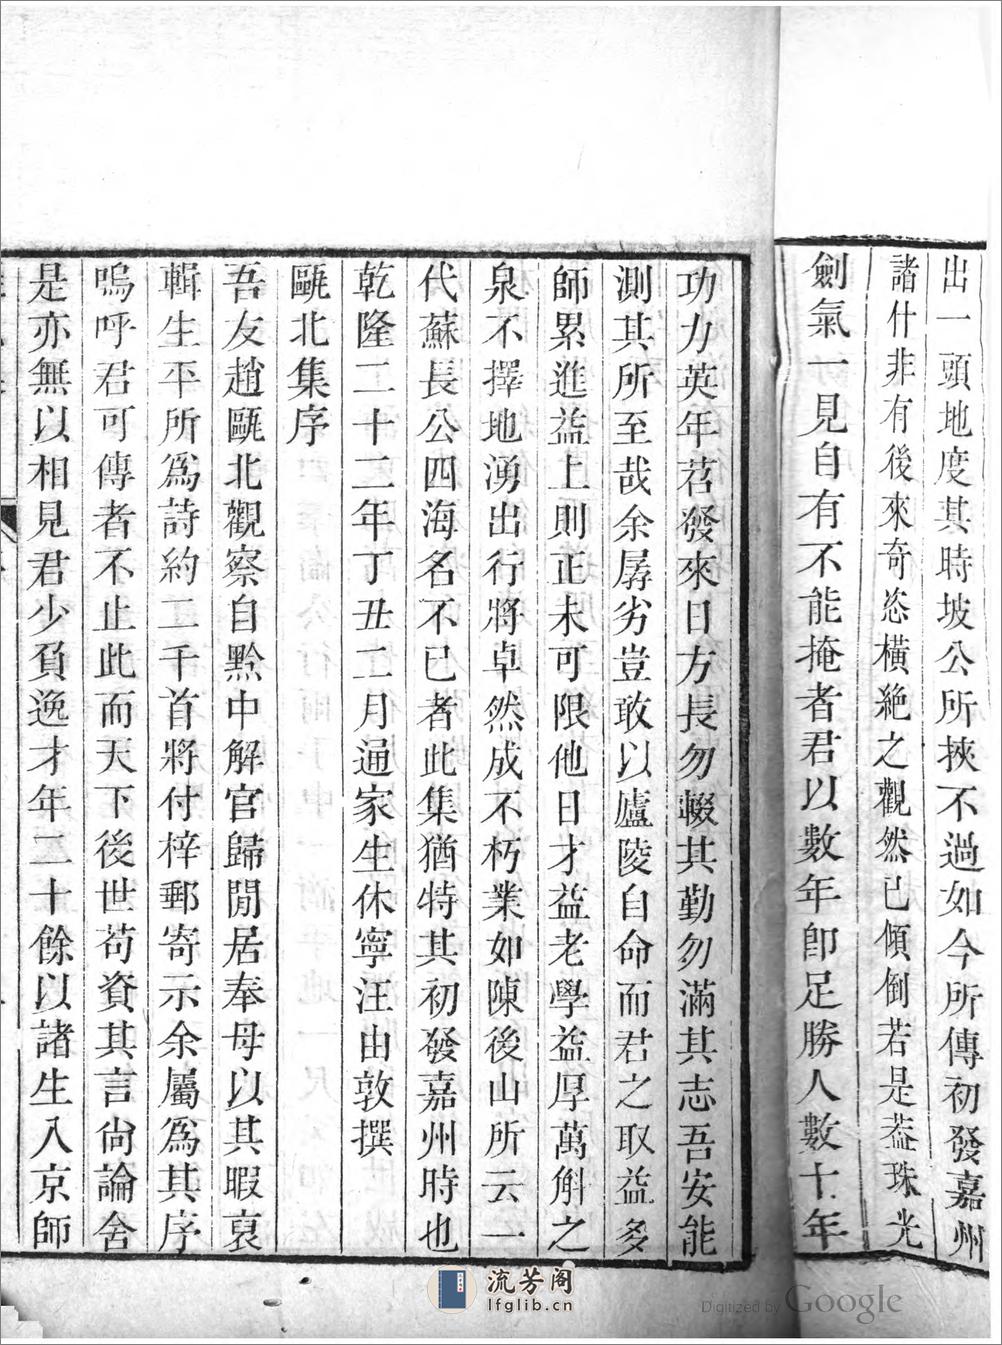 出一頭地度其時坡公所挾不過如今所傳初發嘉州
諸什非有後來奇恣橫絶之觀然已傾倒若是葢珠光
劍氣一見自有不能掩者君以數年卽足勝人數十年
功力英年茗發來日方長勿輟其勤勿滿其志吾安能
測其所至哉余孱劣豈敢以廬陵自命而君之取益多
師累進益上則正未可限他日才益老學益厚萬斛之
泉不擇地湧出行將卓然成不朽業如陳後山所云一
代蘇長公四海名不已者此集猶特其初發嘉州時也
乾隆二十二年丁丑二月通家生休寧汪由敦撰
甌北集序
吾友趙甌北觀察自黔中解官歸閒居奉母以其暇裒
輯生平所爲詩約二千首將付梓郵寄示余屬爲其序
嗚呼君可傳者不止此而天下後世苟資其言尙論舍
是亦無以相見君少負逸才年二十餘以諸生入京師
流芳阁
lfglib.cn
Digitized by Google